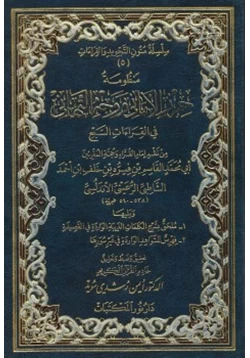 سلسلة متون التجويد والقراءات
(٥)
منظومة
حرز الأماني ووجه التهاني
في القراءات السبع
من نظم إمام القراء وحجة
أبي محمد القاسم بن فيره بن خلف بن أحمد
الشاطبي الرعيني الأندلسي
(٥٣٨ - ٥٩٠ هجرية)
ويليها
١- ملحق بشرح الكلمات الغريبة الواردة في القصيدة
٢- فهرس الشواهد الواردة في غير سورها
خادم القرآن الكريم
الدكتور أيمن رشدي سويد
دار نور المكتبات